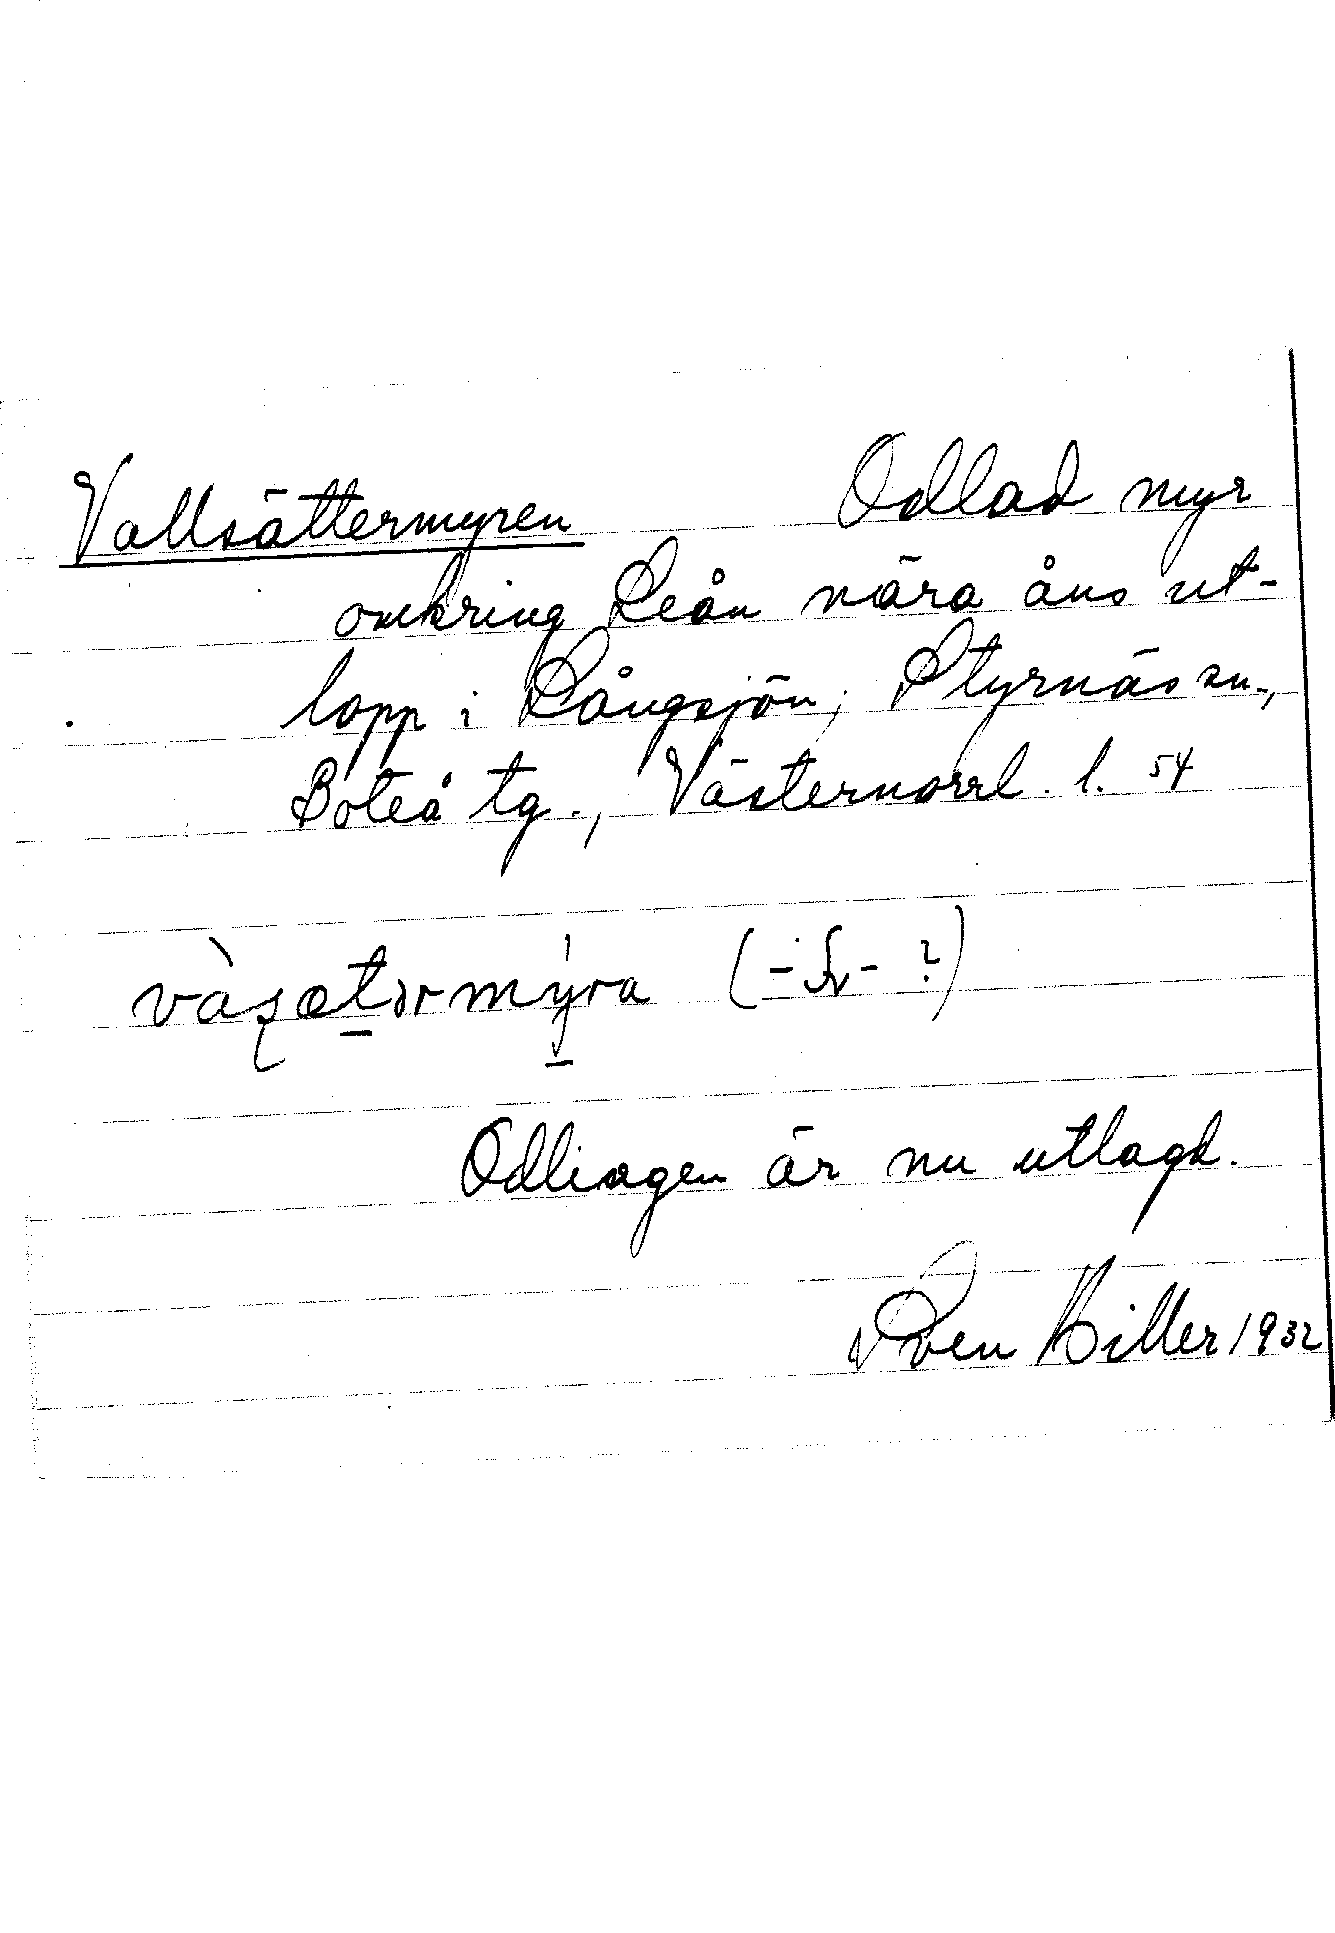 Vallsättermyren Odlad myr
omkring Leån nära åns ut-
lopp i Långsjön, Styrnäs sn.,
Boteå tg., Västernorrl. l. 54
Odlingen är nu utlagd.
Sven Hiller 1932